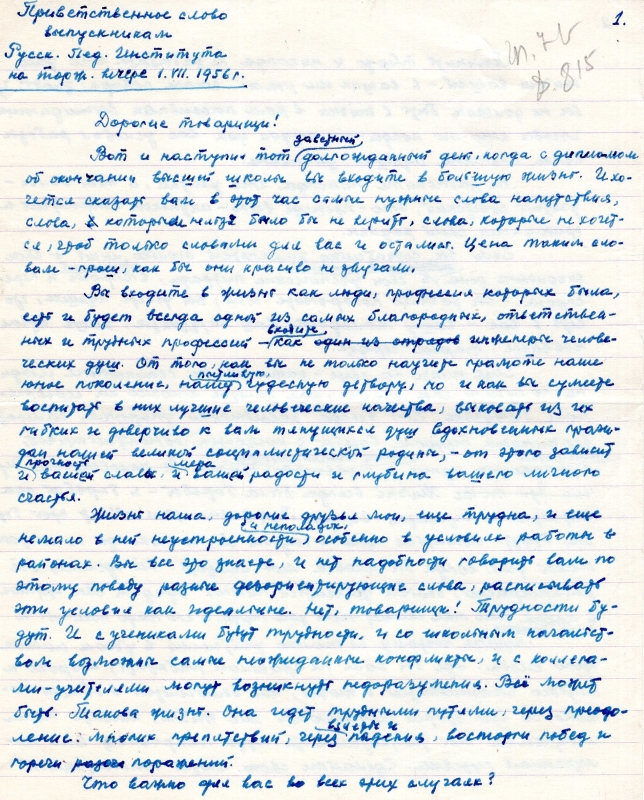 Приветственное слово
выпускникам
Русск. Пед. Института
на торж. вечере 1.VII.1956 г.
1.
815
Дорогие товарищи!
заветный,
Вот и наступил тот долгожданный день, когда с дипломом
об окончании высшей школы вы входите в большую жизнь. И хо-
чется сказать вам в этот час самые нужные слова напутствия,
слова, которым нельзя было бы не верить, слова, которые не хочет-
ся, чтоб только словами для вас и остались. Цена таким сло-
вам – грош, как бы они красиво не звучали.
Вы входите в жизнь как люди, профессия которых была,
есть и будет всегда одной из самых благородных, ответствен-
ных и трудных профессий – как один из отрядов инженеры челове-
ческих душ. От того, как вы не только научите грамоте наше
юное поколение, нашу чудесную детвору, но и как вы сумеете
воспитать в них лучшие человеческие качества, выковать из их
гибких и доверчиво к вам тянущихся душ вдохновенных граж-
дан нашей великой социалистической родины, – от этого зависит
прочность мера
и вашей славы, и вашей радости и глубина вашего личного
счастья.
Жизнь наша, дорогие друзья мои, еще трудна, и еще
и неполадок,
немало в ней неустроенности особенно в условиях работы в
районах. Вы все это знаете, и нет надобности говорить вам по
этому поводу разные дезориентирующие слова, расписывать
эти условия как идеальные. Нет, товарищи! Трудности бу-
дут. И с учениками будут трудности, и со школьным начальст-
вом возможны самые неожиданные конфликты, и с коллега-
ми-учителями могут возникнуть недоразумения. Всё может
быть. Такова жизнь. Она идет трудными путями, через преодо-
взлеты и
ление многих препятствий, через падения, восторги побед и
горечи поражений.
Что важно для вас во всех этих случаях?